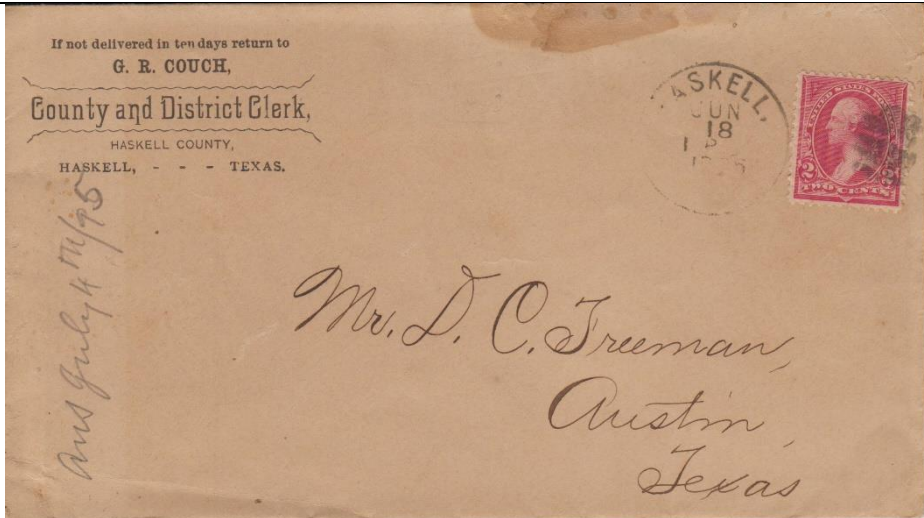 If not delivered in ten days return to
G. R. COUCH,
County and District Clerk,
HASKELL COUNTY,
HASKELL, - - - TEXAS.
ASKELL,
JUN
18
UNITED STATES POSTAGE
2 2
TWO CENTS
Ans July 4th/95
Mr. D. C. Freeman,
Austin,
Texas